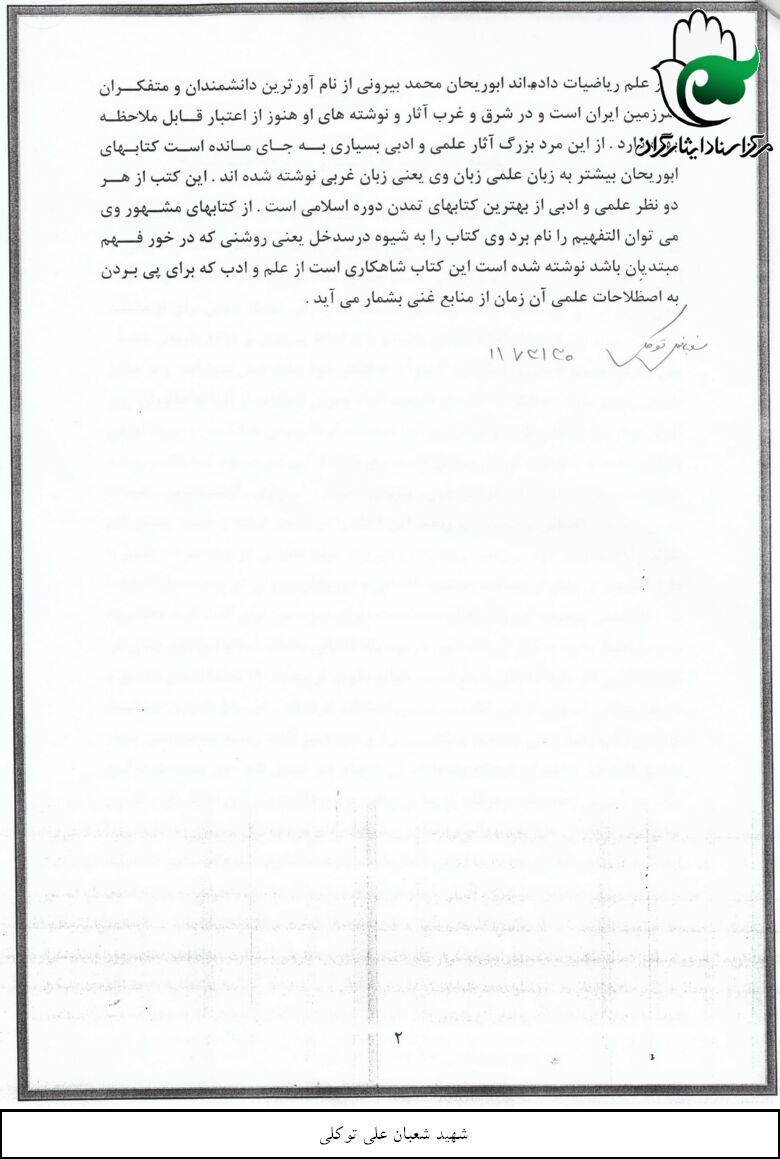 ر علم ریاضیات داده‌اند ابوریحان محمد بیرونی از نام آورترین دانشمندان و متفکران
سرزمین ایران است و در شرق و غرب آثار و نوشته های او هنوز از اعتبار قابل ملاحظه
دارد . از این مرد بزرگ آثار علمی و ادبی بسیاری به جای مانده است کتابهای
ابوریحان بیشتر به زبان علمی زبان وی یعنی زبان غربی نوشته شده اند . این کتب از هر
دو نظر علمی و ادبی از بهترین کتابهای تمدن دوره اسلامی است . از کتابهای مشهور وی
می توان التفهیم را نام برد وی کتاب را به شیوه درسدخل یعنی روشنی که در خور فهم
مبتدیان باشد نوشته شده است این کتاب شاهکاری است از علم و ادب که برای پی بردن
به اصظلاحات علمی آن زمان از منابع غنی بشمار می آید .
مرکز اسناد ایثارگران
توکلی
۲
شهید شعبان علی توکلی